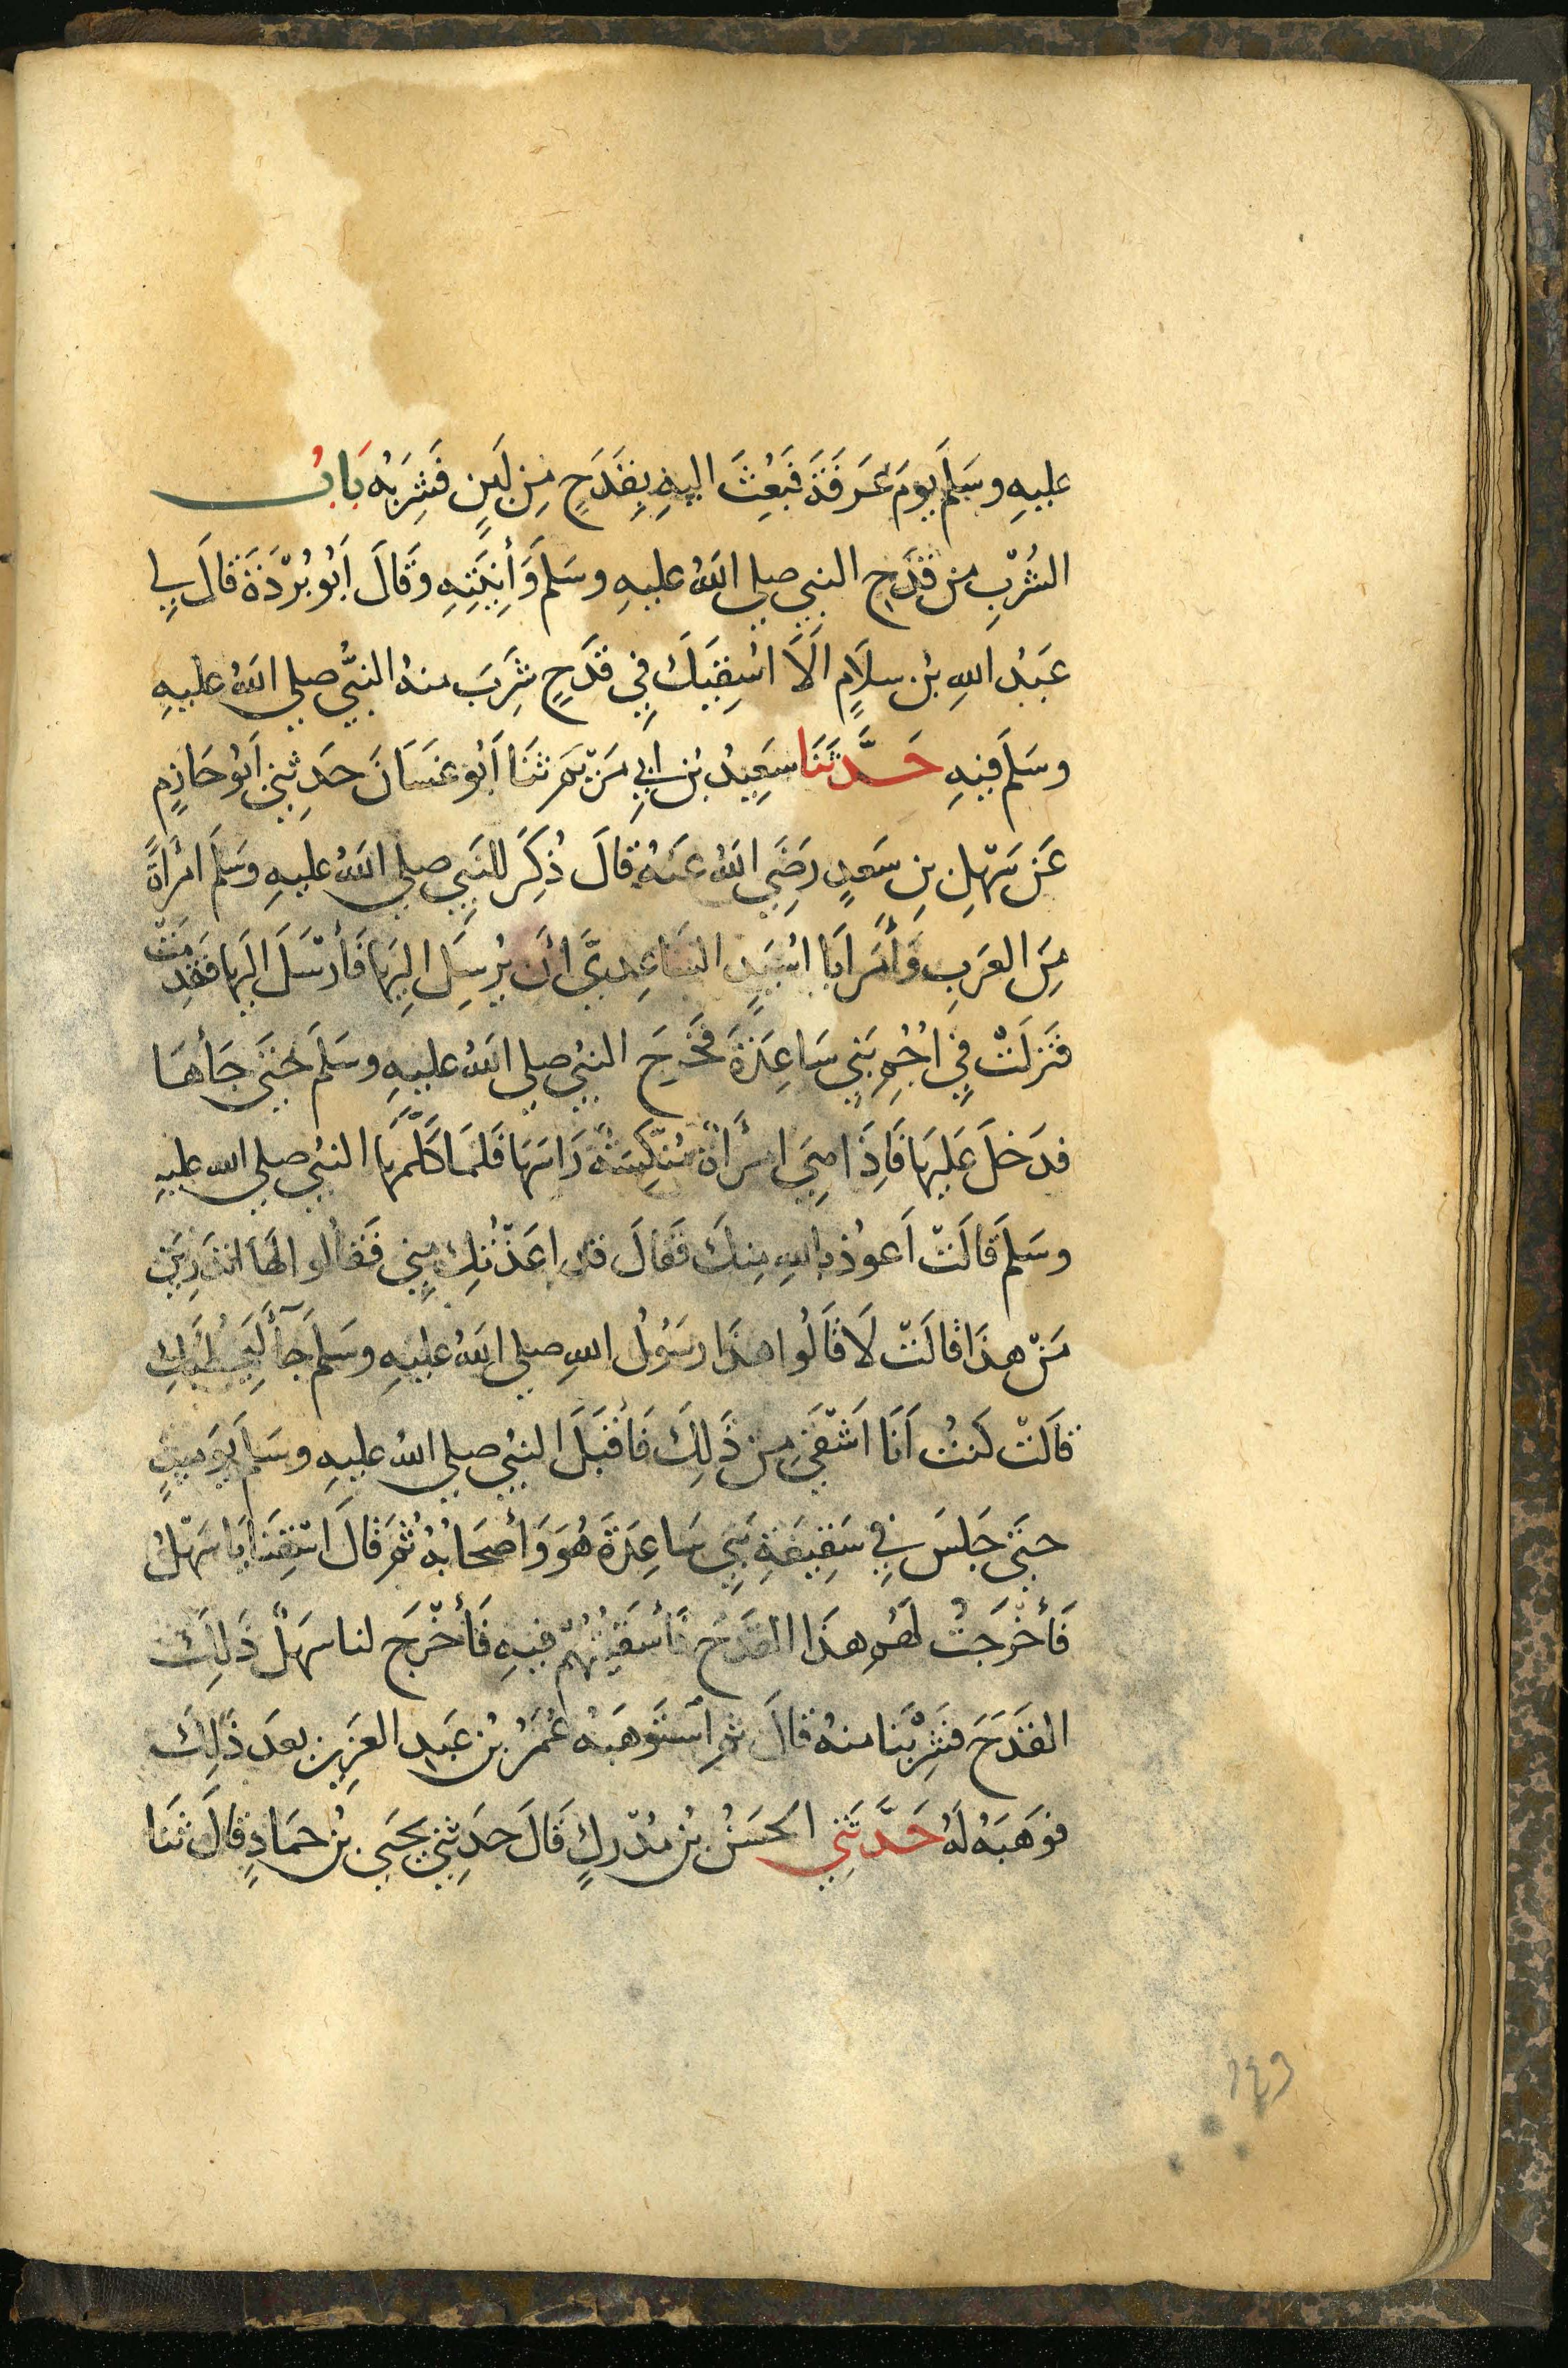 عليهِ وسَلَّمَ يومَ عَرَفَةَ فَبَعِثَ اليهِ بِقَدَحٍ مِن لَبَنٍ فَشَرِبَهُ بَابُ
الشُرْبِ من قَدَحِ النبيِ صلي اللهُ عليهِ وسَلمَ وَأنِيَتِهِ وَقَالَ اَبُو بُرْدَةَ قالَ لِي
عَبدُ اللهِ بْن سلاَمٍ اَلاَ اسْقِيَكَ فِي قَدَحٍ شَرِبَ منهُ النبيُّ صلي اللهُ عليهِ
وسَلمَ فيهِ حَدَّثَنَا سَعِيدُ بْن ابِي مَرْيَمَ ثَنَا اَبُو غَسَانَ حَدثني اَبُو حَازِمٍ
عَن سَهْلِ بنِ سَعدٍ رَضِيَ اللهُ عنهُ قالَ ذُكِرَ للنَبِي صلي اللهُ عليهِ وَسَلمَ امْرَأةً
مِنَ العَرَبِ وَأمَرَ ابَا اسَيدٍ السَاعِدِيَّ انْ يُرْسِلَ اليهَا فَأرْسَلَ اليهَا فَقَدِمَتْ
فَنَزلَتْ فِي اُجُمِ بَنِي سَاعِدَةَ فَخَرَجَ النبيُ صلي اللهُ عليهِ وسَلمَ حَتَى جَأهَا
فدَخلَ عَليهَا فَاِذَا مِيَ امْرَأةٌ مُنَكِسَةٌ رَاسَهَا فَلمَا كَلَّمَهَا النبيُ صلي الله عليهِ
وسَلمَ قَالَتْ اَعوُذُ باللهِ مِنكَ فَقَالَ قد اعَذْتُكِ مِنِي فَقَالوا لهَا اتَدرِينَ
مَنْ هذَا قالَتْ لاَ قَالُوا هذَا رسَوُلُ اللهِ صلي اللهُ عليهِ وسَلمَ جَآ لِيَخطُبَكِ
قالَتْ كُنتُ اَنَا اَشْقَى مِن ذَلِكَ فَأقبَلَ النبيُ صلي اللهُ عليهِ وسَلمَ يَوميذٍ
حتَى جَلسَ فِي سَقِيفَةِ بَنِي سَاعِدَةَ هُوَ وَأصحَابُهُ ثُمَ قَالَ اسْقِنَا يَا سَهْلُ
فَأخْرَجتُ لهُم هذَا القَدَحَ فَأسْقَيْتُهُمْ فِيهِ فَأخْرَجَ لنا سَهلٌ ذَلِكَ
القَدَحَ فشَرِبْنَا منهُ قالَ ثم استَوهَبَهُ عُمَرُ بُن عَبدِ العَزيزِ بعدَ ذَلِكَ
فوَهَبَهُ لَهُ حَدَّثَنِي الحَسَنُ بْن مُدْركٍ قَالَ حَدثني يَحيَى بْن حمَادٍ قَالَ ثَنَا